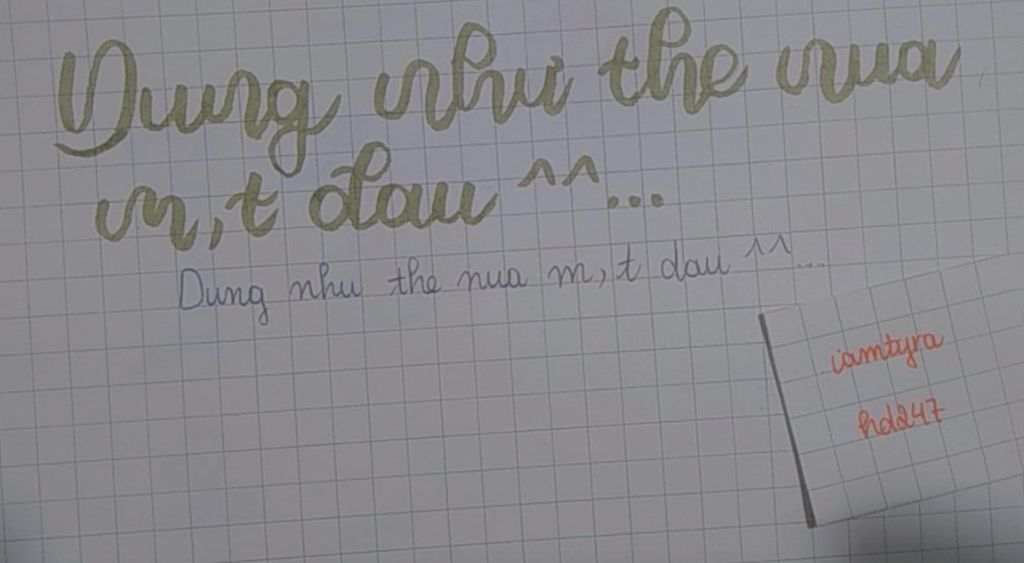 Dung nhu the nua
m, t dau ^^...
Dung nhu the nua m, t dau ^^....
iamtyra
hd247